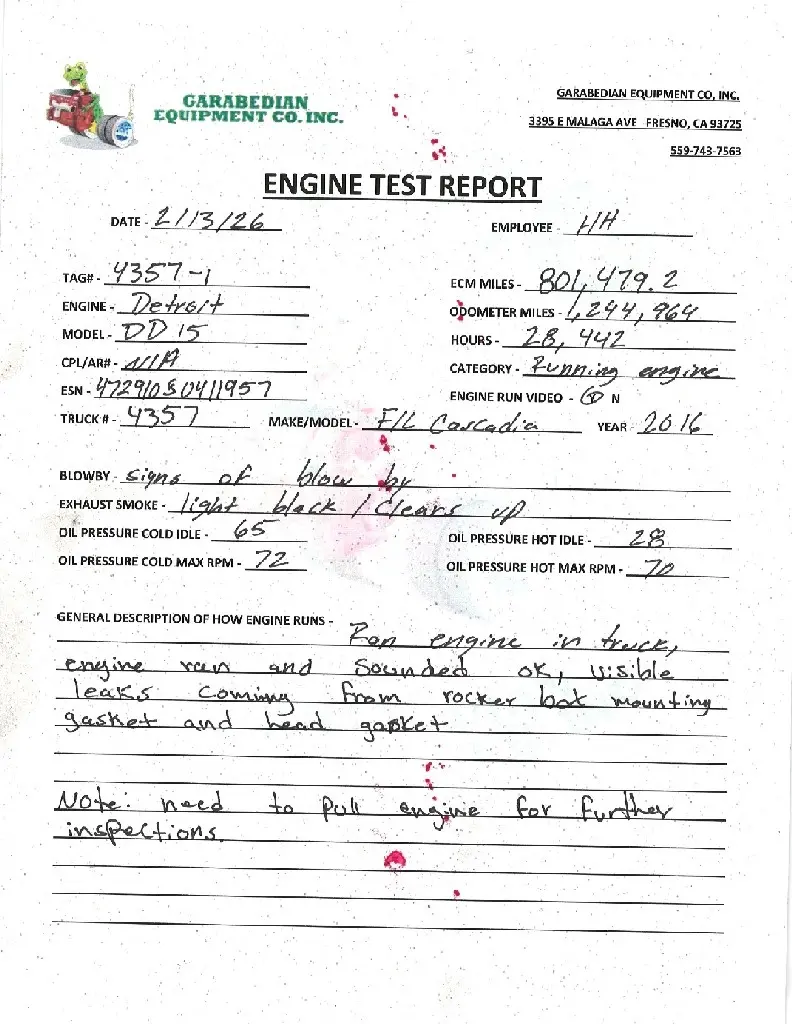 GARABEDIAN
EQUIPMENT CO. INC.
GARABEDIAN EQUIPMENT CO, INC.
3395 E MALAGA AVE FRESNO, CA 93725
559-743-7563
ENGINE TEST REPORT
DATE - 2/13/26 EMPLOYEE - HH
TAG# - 4357-1 ECM MILES - 801,479.2
ENGINE - Detroit ODOMETER MILES - 1,244,964
MODEL - DD15 HOURS - 28,442
CPL/AR# - N/A CATEGORY - Running engine
ESN - 472910S0411957 ENGINE RUN VIDEO - Y N
TRUCK # - 4357 MAKE/MODEL - F/L Cascadia YEAR - 2016
BLOWBY - signs of blow by
EXHAUST SMOKE - light black / clears up
OIL PRESSURE COLD IDLE - 65 OIL PRESSURE HOT IDLE - 28
OIL PRESSURE COLD MAX RPM - 72 OIL PRESSURE HOT MAX RPM - 70
GENERAL DESCRIPTION OF HOW ENGINE RUNS - Ran engine in truck,
engine run and sounded ok, visible
leaks coming from rocker box mounting
gasket and head gasket
Note: need to pull engine for further
inspections.